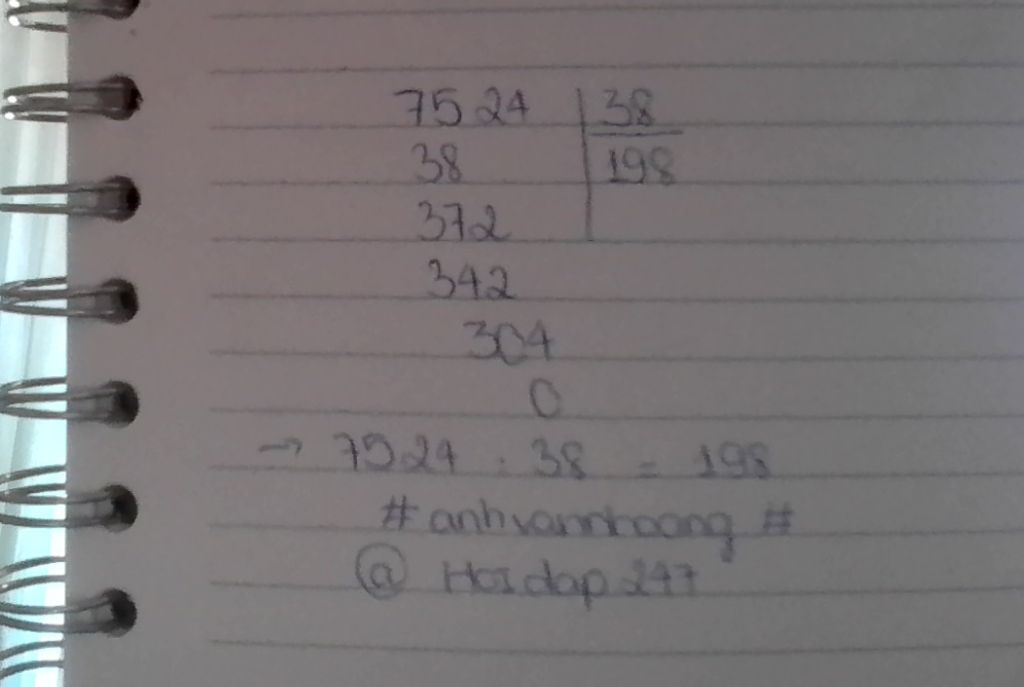 7524 38
38 198
372
342
304
0
→ 7524 : 38 = 198
#anhvannhoang #
@ Hoidap247